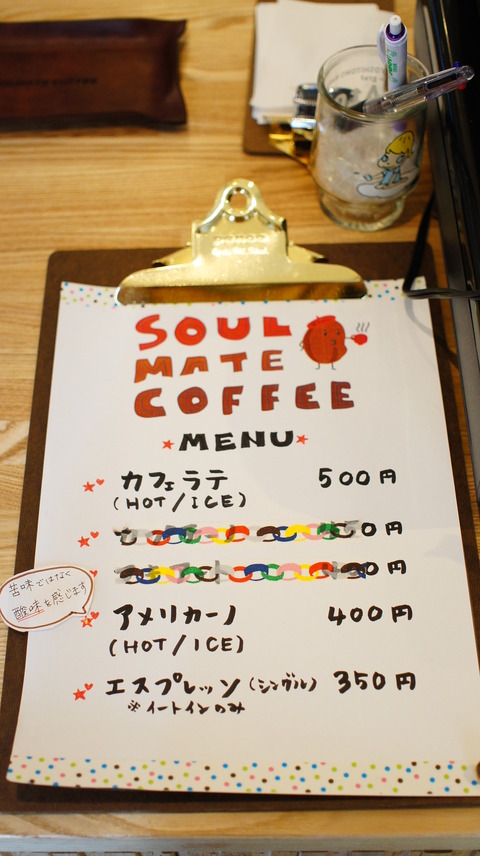 SOUL
MATE
COFFEE
MENU
カフェラテ 500円
(HOT/ICE)
0円
0円
苦味ではなく
酸味を感じます
アメリカーノ 400円
(HOT/ICE)
エスプレッソ(シングル) 350円
※イートインのみ